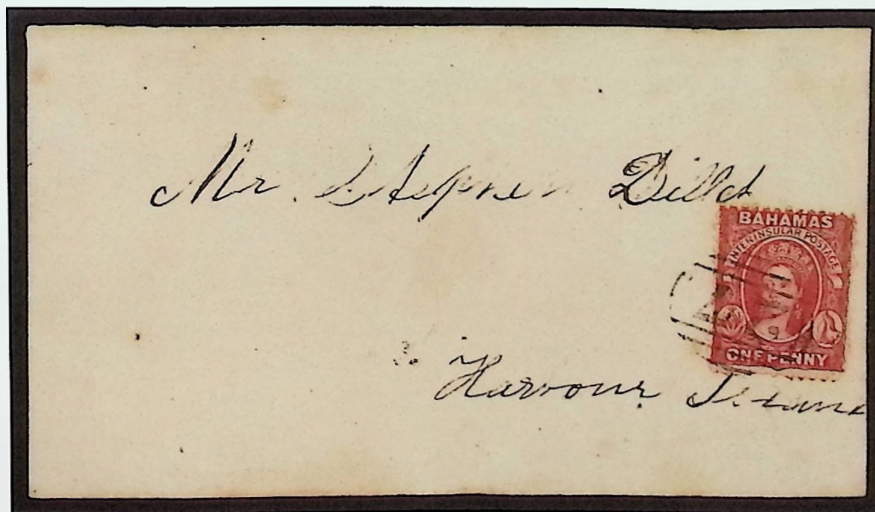 Mr. Stephen Dillet
BAHAMAS
INTERINSULAR POSTAGE
ONE PENNY
Harbour Island